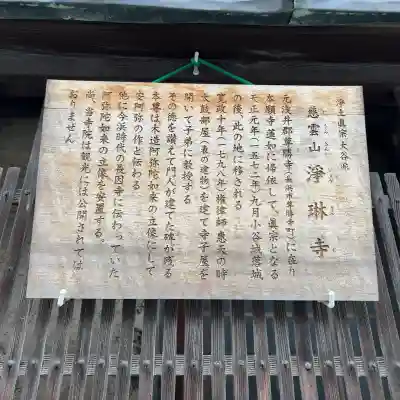 浄土真宗大谷派
慈雲山 淨琳寺
元浅井郡尊勝寺(長浜市尊勝寺町)に在り
本願寺蓮如に帰依して、真宗となる
天正元年(一五七三年)九月小谷城落城
の後、此の地に移される
寛政十年(一七九八年)権律師恵衷の時
太鼓部屋(表の建物)を建て寺子屋を
開いて子弟に教授する
その徳を讃えて門人が建てた碑が残る
本尊は木造阿弥陀如来の立像にして
安阿弥の作と伝わる
他に今浜時代の長因寺に伝わっていた
阿弥陀如来の立像を安置する。
尚、当寺院は観光には公開されては
おりません